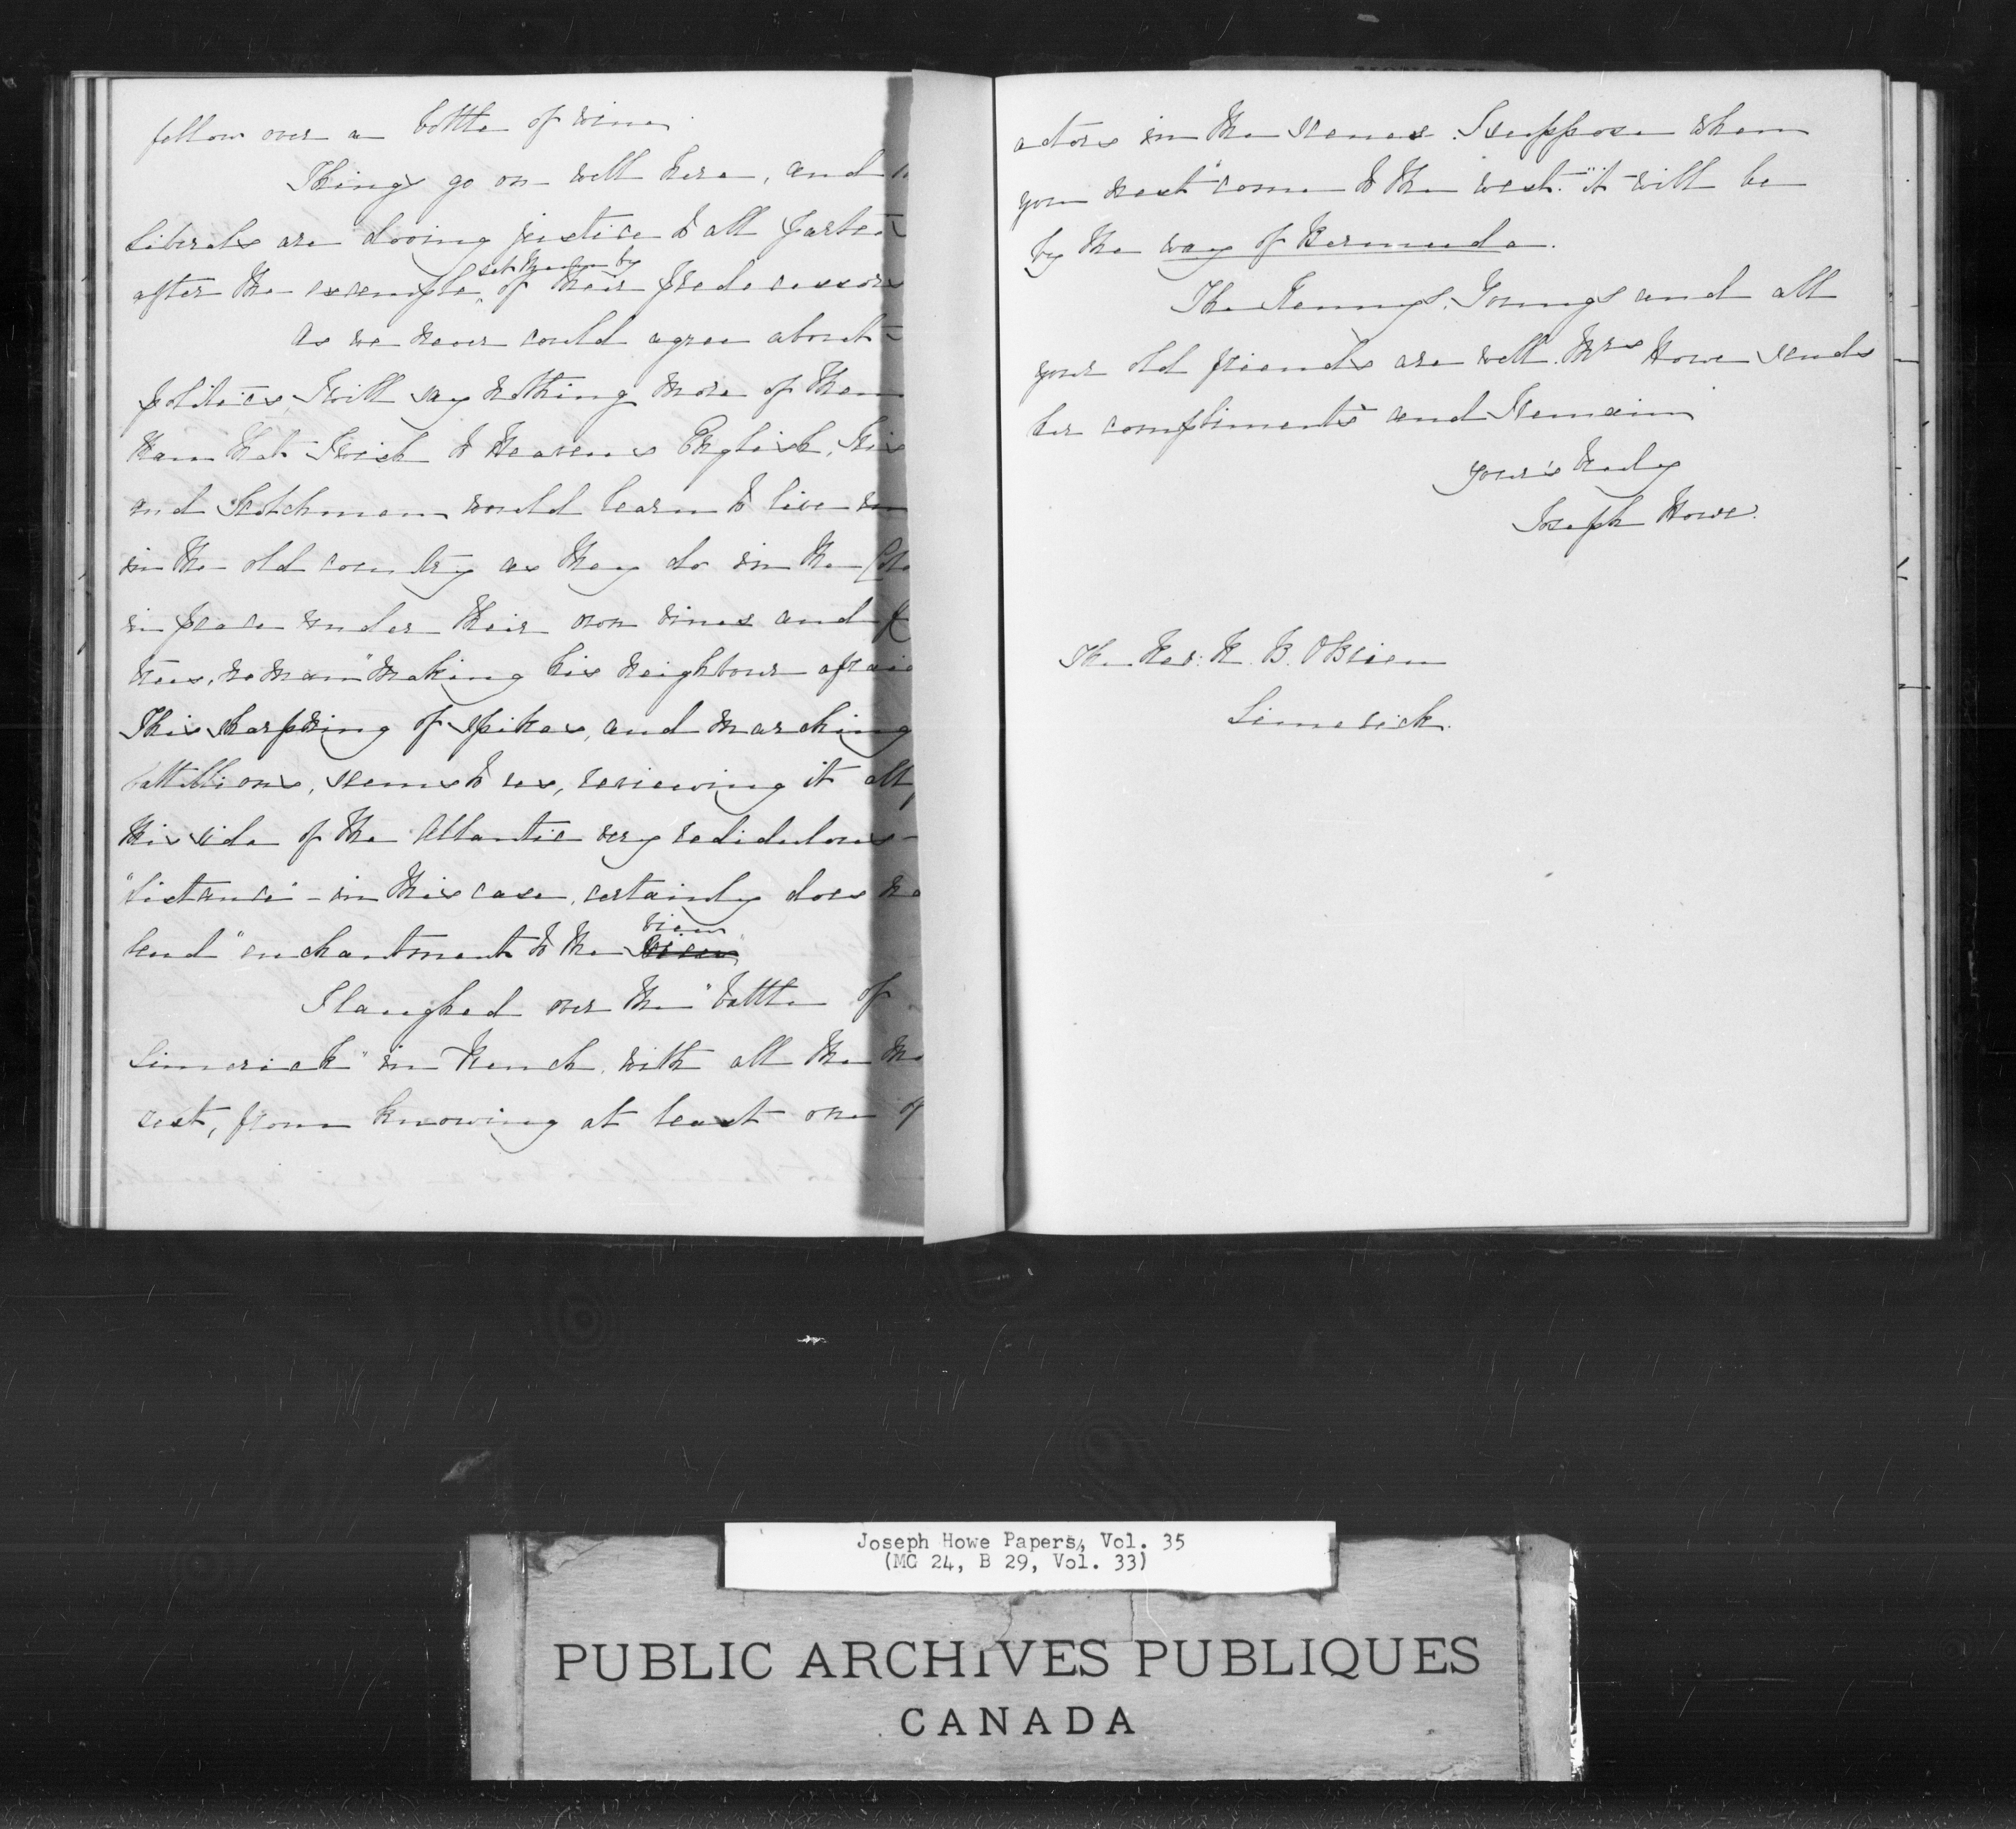 fellow over a bottle of wine.
Things go on well here, and
Liberals are dooing justice to all parties
after the example set them by of their predecessors
As we never could agree about
politics, I will say nothing more of them
than that I wish to Heavens English, Iris
and Scotchmen would learn to live
in the old country as they do in the Colo
in peace under their own vines and f
trees, no man "making his neighbour afraid
This sharpning of spikes, and marching
battillions, seems to us, reviewing it all,
this side of the Atlantic very redidulous -
"distance" - in this case, certainly does no
lend "enchantment to the view view"
I laughed over the "battle of
Limerick" in Trench, with all the
rest, from knowing at least one of
actors in the scenes. I suppose when
you next "come to the west." it will be
by the way of Bermuda.
The Kennys, Youngs and all
your old friends are well. Mrs Howe sends
her compliments and I remain
your's truly
Joseph Howe.
The Rev: R. B. OBrien
Limerick.
Joseph Howe Papers, Vol. 35
(MG 24, B 29, Vol. 33)
PUBLIC ARCHIVES PUBLIQUES
CANADA